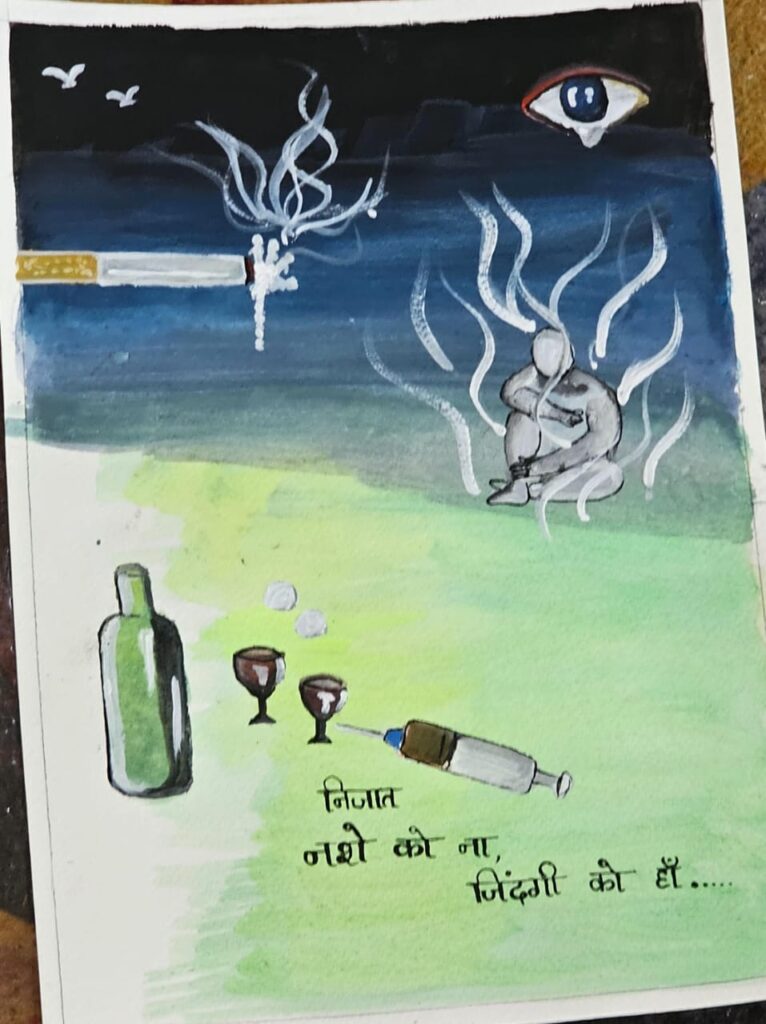 निजात
नशे को ना,
जिंदगी को हाँ.....